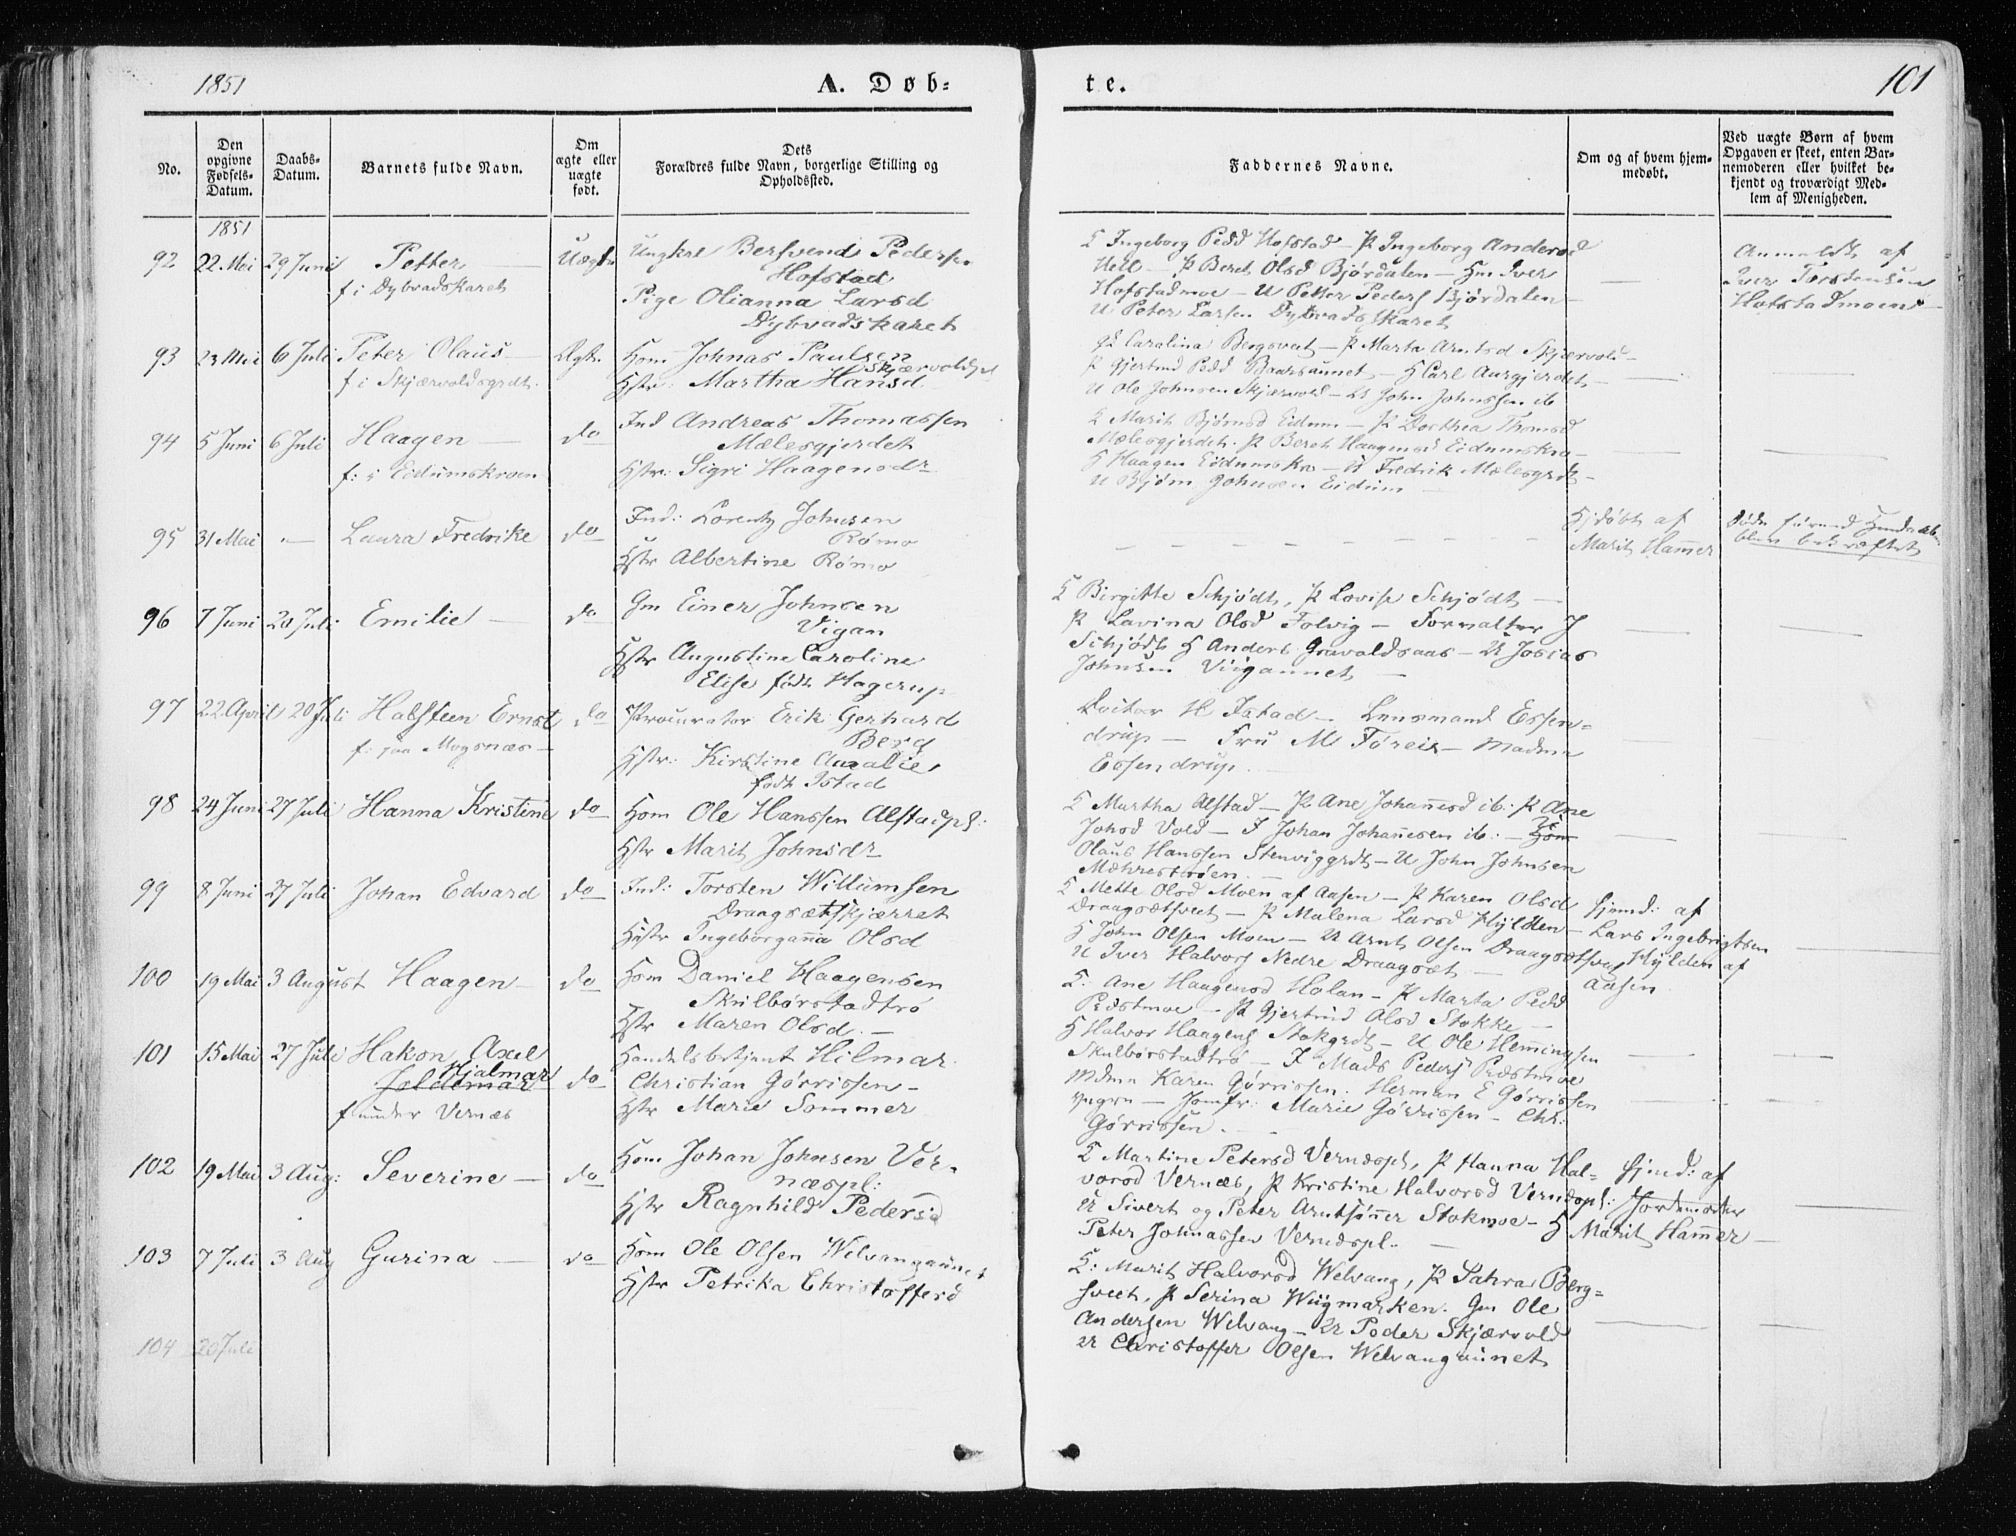 1851
A. Døb-
te.
101
No.
Den
opgivne
Fødsels-
Datum.
Daabs-
Datum.
Barnets fulde Navn.
Om
ægte eller
uægte
født.
Dets
Forældres fulde Navn, borgerlige Stilling og
Opholdssted.
Faddernes Navne.
Om og af hvem hjem-
medøbt.
Ved uægte Børn af hvem
Opgaven er skeet, enten Bar-
nemoderen eller hvilket be-
kjendt og troværdigt Med-
lem af Menigheden.
1851
92 22 Mai 29 Juni Petter
f i Dybvadskaret
Uægte
Ungkrl Bersvend Peders.
Hofstad
Pige Olianna Larsd
Dybvadskaret
K Ingeborg Pedd Hofstad – P Ingeborg Andersd
Hell – P Beret Olsd Bjørdalen – Hm Iver
Hofstadmoe – U Petter Peders Bjørdalen
U Peter Larsen Dybvadsskaret
Anmeldt af
Iver Torstensen
Hofstadmoen
93 23 Mai 6 Juli Peter Olaus
f i Skjærvoldsgrdt.
Ægte
Hom Johnas Paulsen
Skjærvoldspl
Hstr: Martha Hansd
Carolina Bergsvert – P Marta Arntsd Skjærvold
P Gjertrud Pedd Baarsaunet – G Carl Aurgjerdet
U Ole Johnsen Skjærvold – U John Johnssen ib
94 5 Juni 6 Juli Haagen
f: i Eidumskroen
do
Ind Andreas Thomassen
Mælesgjerdet
Hstr: Sigri Haagensdr
K Marit Bjørnsd Eidum – P Dorthea Thomsd
Mælesgjerdet. P Beret Haagensd Eidumskro
G Haagen Eidumskro – U Fredrik Mælesgrdt
U Bjørn Johnsen Eidum
95 31 Mai – Laura Fredrike
do
Ind: Lorentz Johnsen
Rømo
Hstr Albertine Rømo
Hjdøbt af
Marit Hamer
døde førend
blev bekræftet
96 7 Juni 20 Juli Emilie
do
Gm Einer Johnsen
Vigan
Hstr Augustine Caroline
Elise født Hagerup
K Birgitte Schjødt, P Lovise Schjødt
P Lavina Olsd Folvig – Forvalter J
Schjødt G Anders Gravaldsaas – U Josias
Johnsen Viigaunet
97 22 April 20 Juli Halsteen Ernst
f: paa Mogsnæs
do
Procurator Erik Gerhard
Berg
Hstr: Kirstine Amalie
født Istad
Doctor H Istad – Lensmand Essen-
drup – Fru M Føreis – Madm
Essendrup.
98 24 Juni 27 Juli Hanna Kristine
do
Hom Ole Hanssen Alstadpl:
Hstr Marit Johnsdr
K Martha Alstad – P Ane Johannesd ib: P Ane
Johsd Vold – I Johan Johannesen ib: – Hom
Olaus Hanssen Stenviggrdt – U John Johnsen
Mæhrestrøen.
99 8 Juni 27 Juli Johan Edvard
do
Ind: Torsten Willumsen
Draagsætskjærret
Hstr Ingeborganna Olsd
K Mette Olsd Moen af Aasen – P Karen Olsd
Draagsætsveet – P Malena Larsd Hylden
G John Olsen Moen – U Arnt Olsen Draagsætsveet
U Iver Halvors Nedre Draagsæt
hjemd: af
Lars Ingebrigtsen
Hylden af
Aasen
100 19 Mai 3 August Haagen
do
Hom Daniel Haagensen
Skilbørstadtrø
Hstr Maren Olsd.
K: Ane Haagensd Holan – P Marta Pedd
Prestmoe – P Gjertrud Olsd Stokke
G Halvor Haagens Stokgrdt – U Ole Hemingsen
Skulbørstadtrø – I Mads Peders Prestmoe
101 15 Mai 27 Juli Hakon Axel
Hjalmar
f under Vernæs
do
Handelsbetjent Hilmar
Christian Gørrissen
Hstr Marie Sommer
Mdme Karen Gørrissen. Herman E Gørrissen
yngre – Jomfr: Marie Gørrissen – Chr:
Gørrissen.
102 19 Mai 3 Aug: Severine
do
Hom Johan Johnsen Ver-
næspl:
Hstr Ragnhild Pedersd
K Martine Petersd Vernæspl, P Hanna Hal-
vorsd Vernæs, P Kristine Halvorsd Vernæspl:
U Sivert og Peter Arntsønner Stokmoe – G
Peter Johnassen Vernæspl.
hjemd: af
Jordemoder
Marit Hamer
103 7 Juli 3 Aug Gurina
do
Hom Ole Olsen Welvangaunet
Hstr Petrika Christoffersd
K: Marit Halvorsd Welvang, P Sahra Berg-
sveet, P Serina Wiigmarken. Gm Ole
Andersen Welvang – U Peder Skjærvold
U Christoffer Olsen Welvangaunet
104 20 Juli